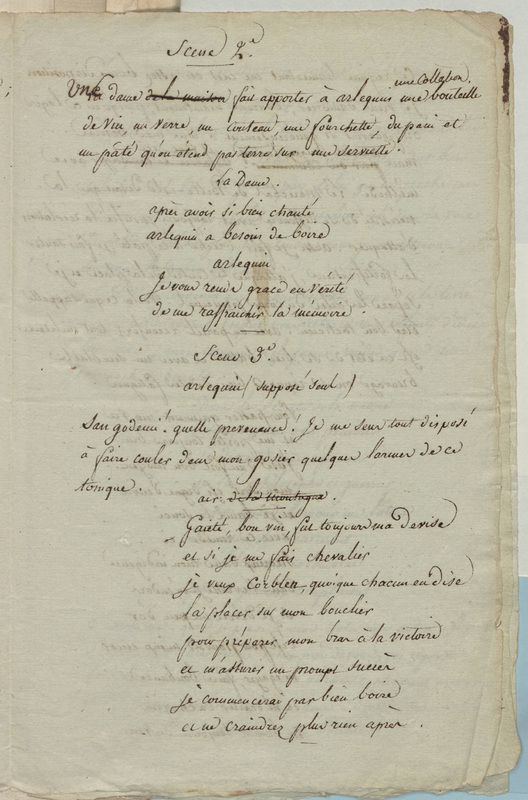 Scene 2.e
une Collation.
Une dame de la maison fait apporter à arlequin une bouteille
de vin un verre, un couteau, une fourchette, du pain et
un pâté qu'on étend par terre sur une serviette.
La Dame.
après avoir si bien chanté
arlequin a besoin de boire
arlequin
Je vous rends grace en vérité
de me raffraichir la mémoire.
Scene 3.e
arlequin (supposé seul)
Sangodemi! quelle prevenance! Je me sens tout disposé
à faire couler dans mon gosier quelques larmes de ce
tonique.
air de la montagne.
Gaieté, bon vin, fut toujours ma devise
et si je me fais chevalier
je veux corbleu, quoique chacun en dise
la placer sur mon bouclier
pour préparer mon bras à la victoire
et m'assurer un prompt succès
je commencerai par bien boire
et ne craindrez plus rien après.